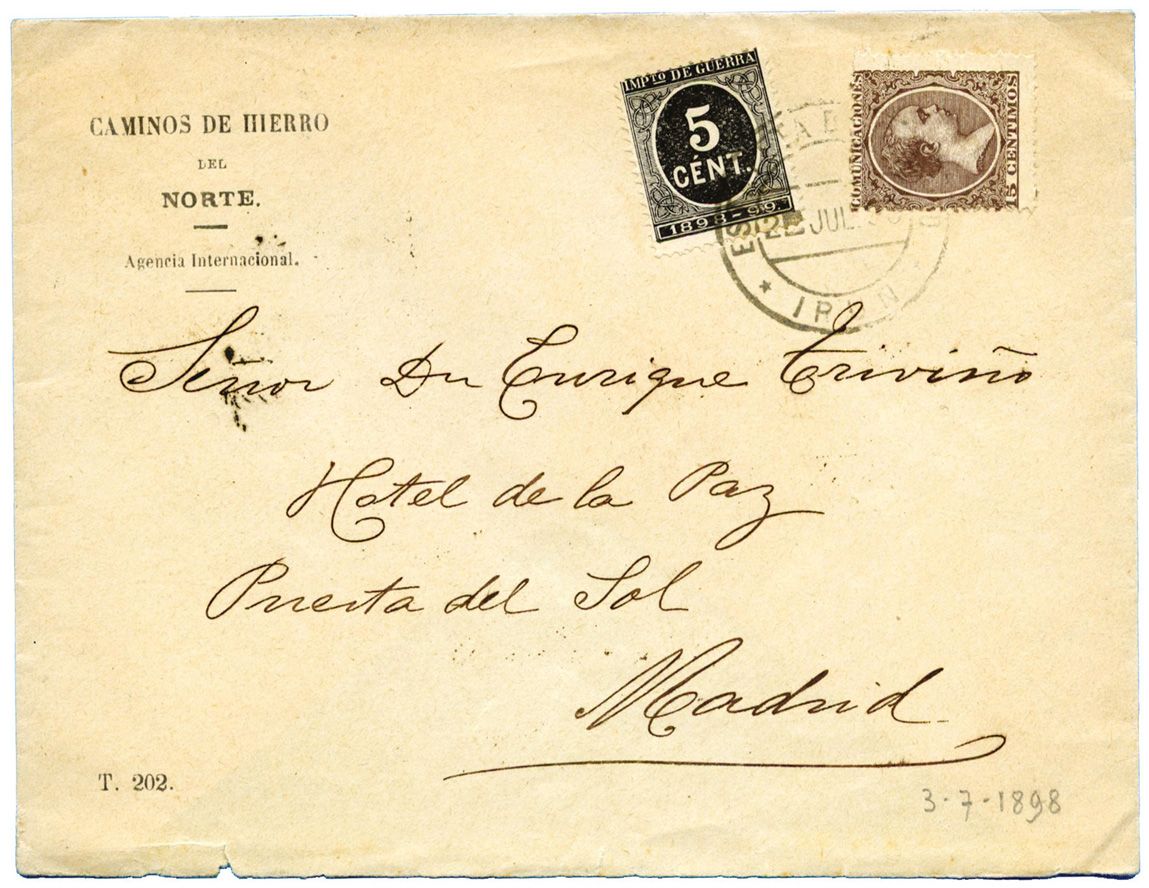 CAMINOS DE HIERRO
DEL
NORTE.
Agencia Internacional.
IMPTO DE GUERRA
5
CÉNT.
1898-99.
COMUNICACIONES
15 CENTIMOS
JUL.
IRUN
Señor Dn Enrique Triviño
Hotel de la Paz
Puerta del Sol
Madrid
T. 202.
3-7-1898